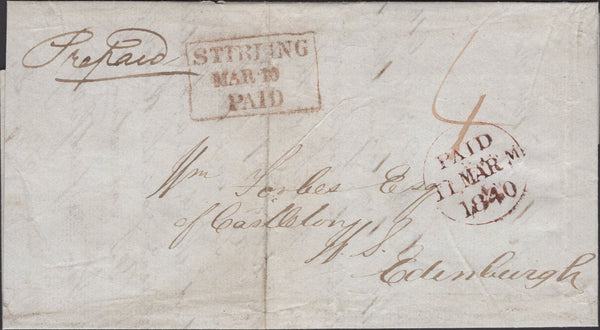 Prepaid
STIRLING
MAR 10
PAID
PAID
11 MAR M
1840
Wm Forbes Esq
of Castleton
W.S.
Edenburgh